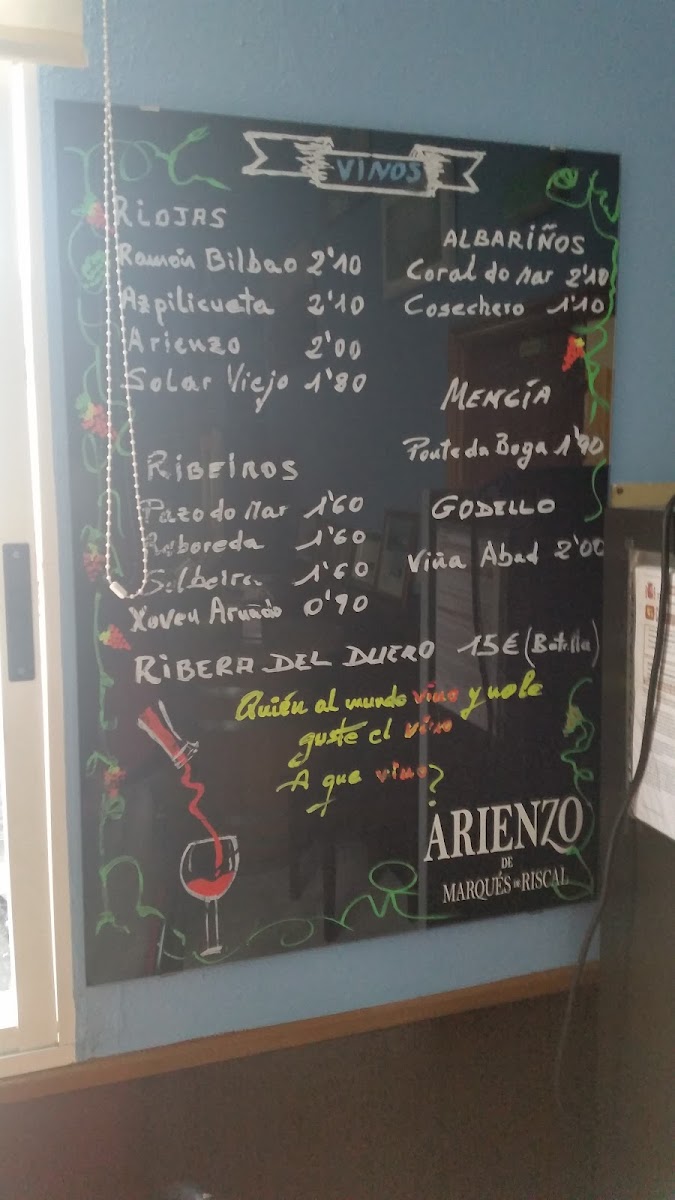 VINOS
RIOJAS
Ramón Bilbao 2'10
Azpilicueta 2'10
Arienzo 2'00
Solar Viejo 1'80
RIBEIROS
Pazo do Mar 1'60
Reboreda 1'60
1'60
Xoven Arnado 0'90
ALBARIÑOS
Coral do Mar 2'10
Cosechero 1'10
MENCÍA
Ponte da Boga 1'90
GODELLO
Viña Abad 2'00
RIBERA DEL DUERO 15€ (Botella)
Quién al mundo vino y no le
guste el vino
A que vino?
ARIENZO
DE
MARQUÉS DE RISCAL